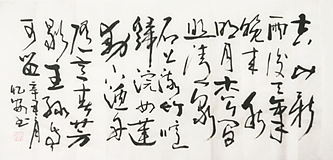 空山新
雨後天氣
晚來秋
明月松間
照清泉
石上流竹喧
歸浣女蓮
動下漁舟
隨意春芳
歇王孫自
可留